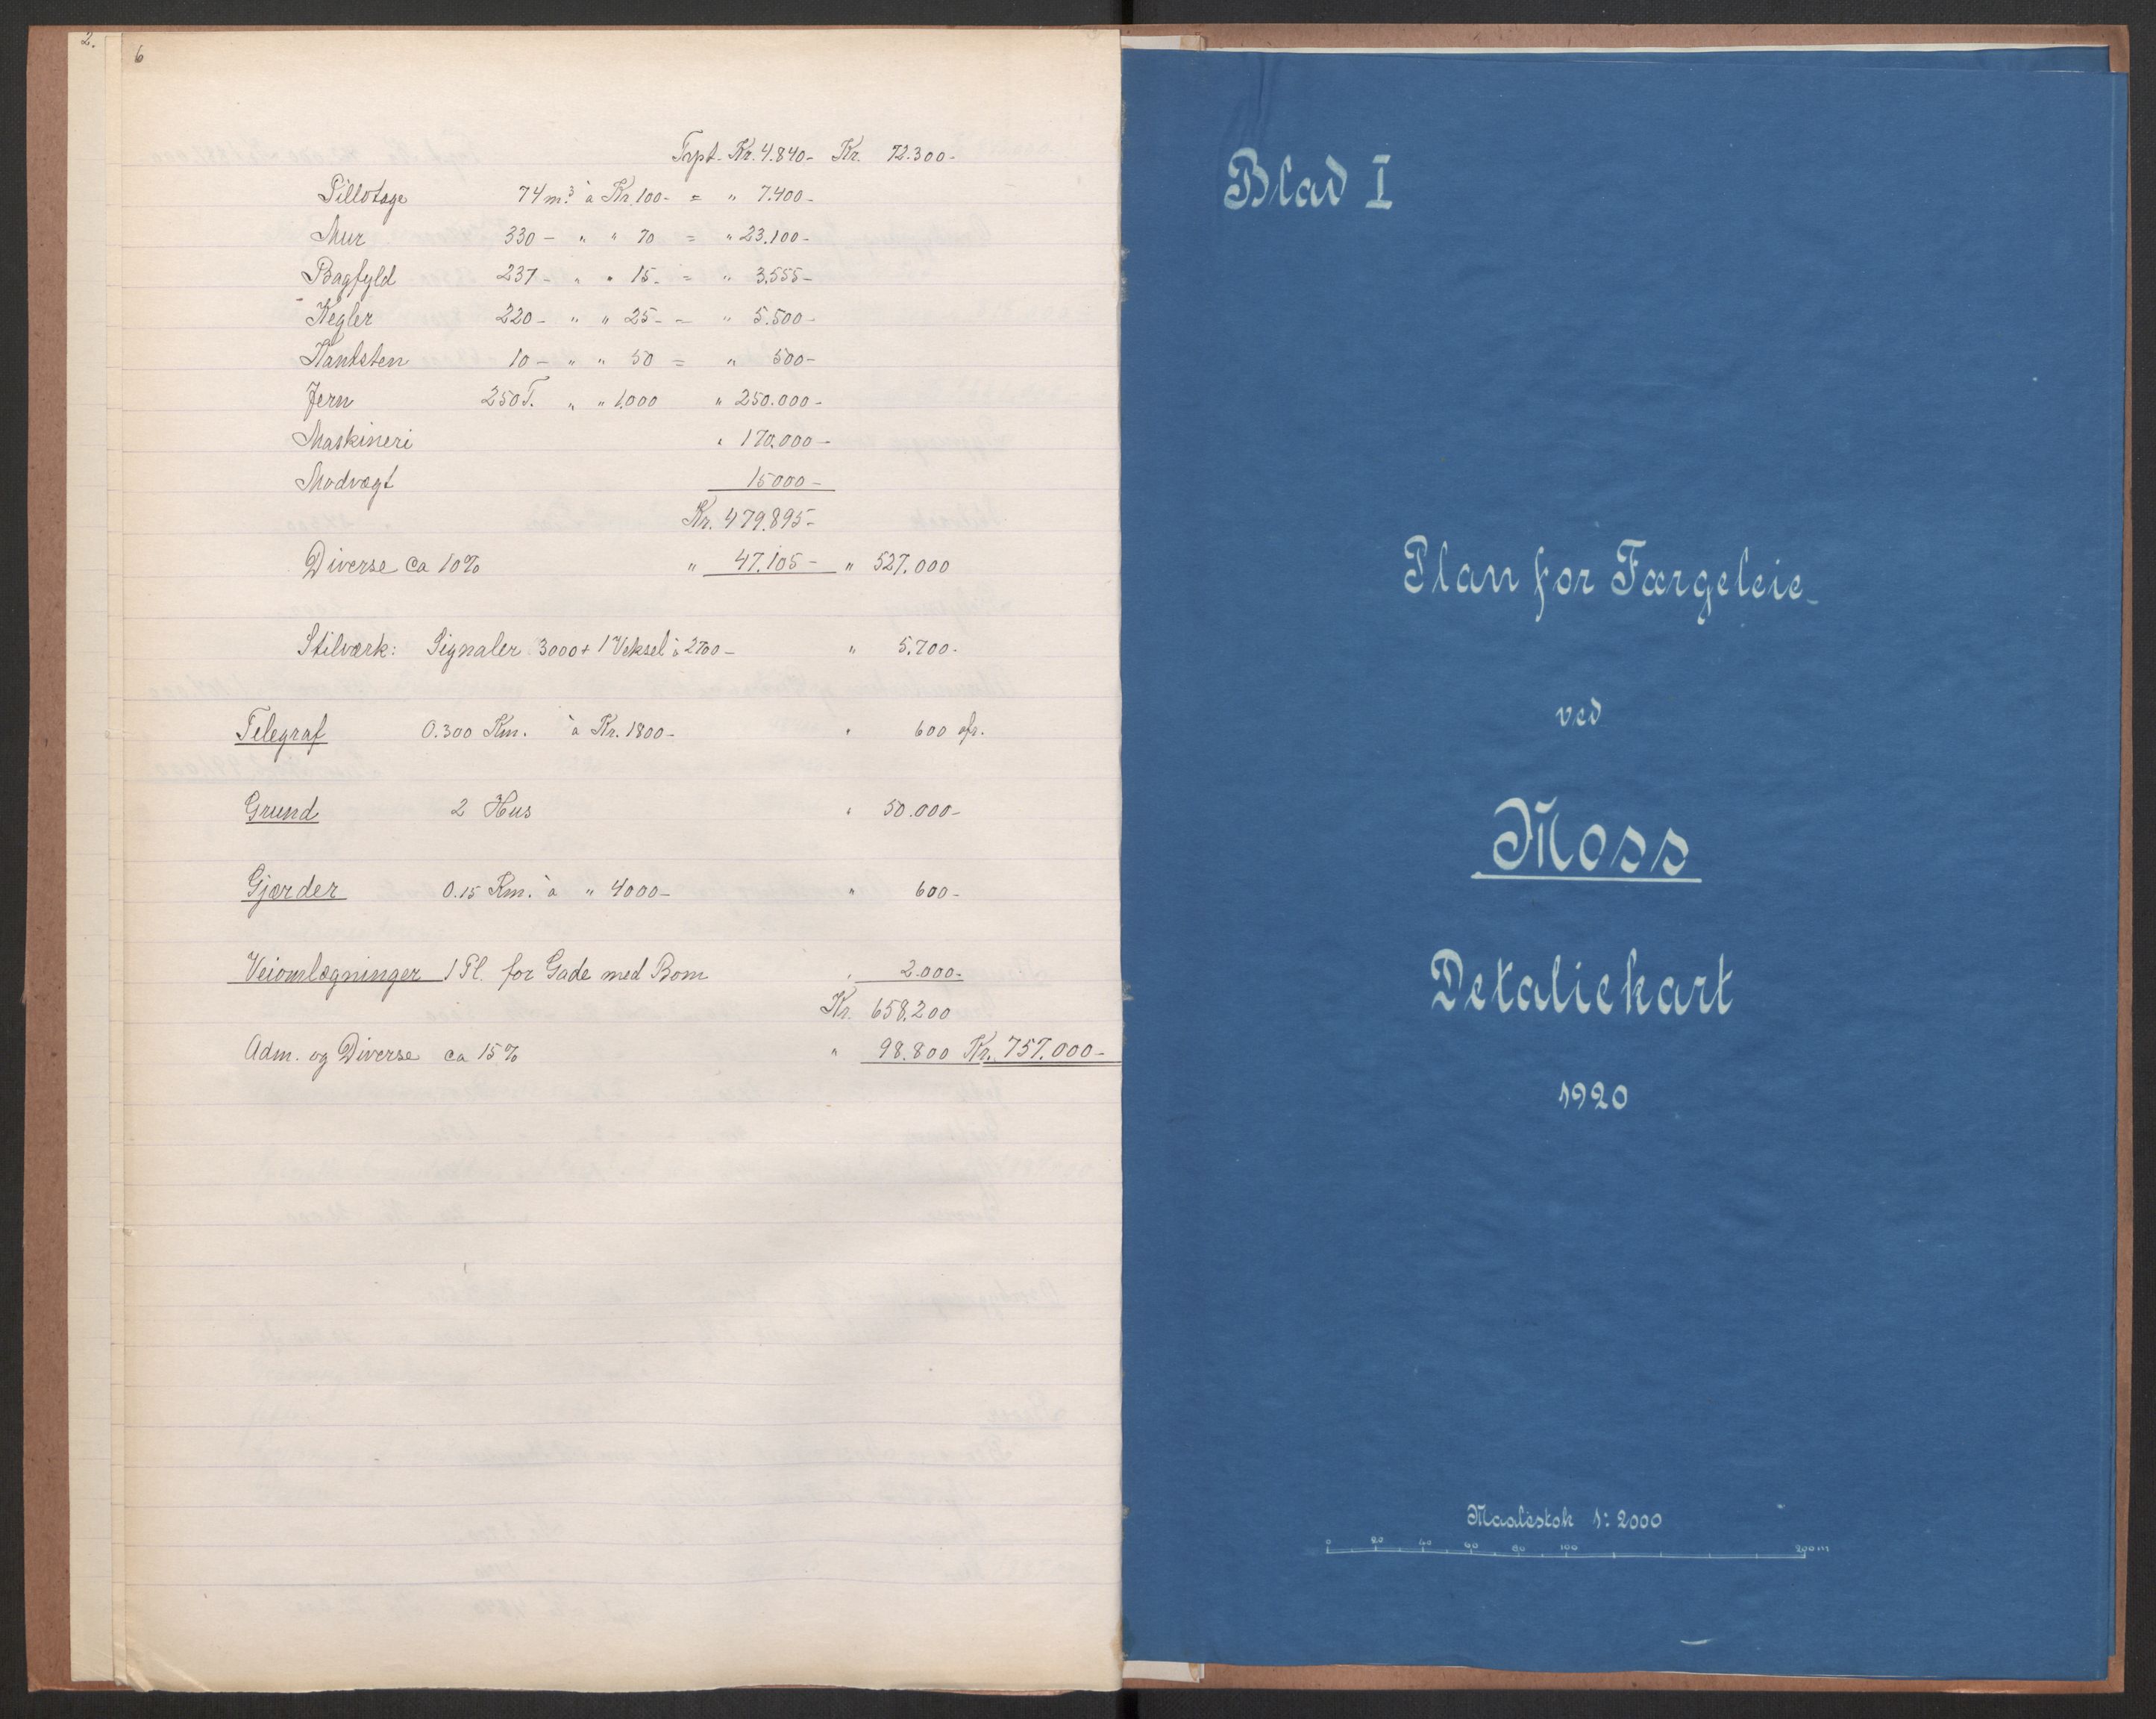 2.
6
Trpt. Kr. 4.840- Kr. 72.300-
Pillotage 74 m.³ à Kr. 100- = " 7.400-
Mur 330 - " " 70 = " 23.100-
Bagfyld 237 - " " 15- = " 3.555-
Kegler 220 - " " 25- = " 5.500-
Kantsten 10 - " " 50 = " 500-
Jern 250 T. " " 1.000 " 250.000-
Maskineri " 170.000-
Modvægt 15000-
Kr. 479.895-
Diverse ca 10% " 47.105- " 527.000
Stilværk: Signaler 3000 + 1 Veksel à 2700- " 5.700-
Telegraf 0.300 Km. à Kr. 1800- " 600 afr.
Grund 2 Hus " 50.000-
Gjærder 0.15 Km. à " 4000- " 600-
Veiomlægninger 1 Pl. for Gade med Bom " 2.000-
Kr. 658.200
Adm. og Diverse ca 15% " 98.800 Kr. 757.000-
Blad I
Plan for Færgeleie
ved
Moss
Detaliekart
1920
Maalestok 1:2000
0 20 40 60 80 100 200 m